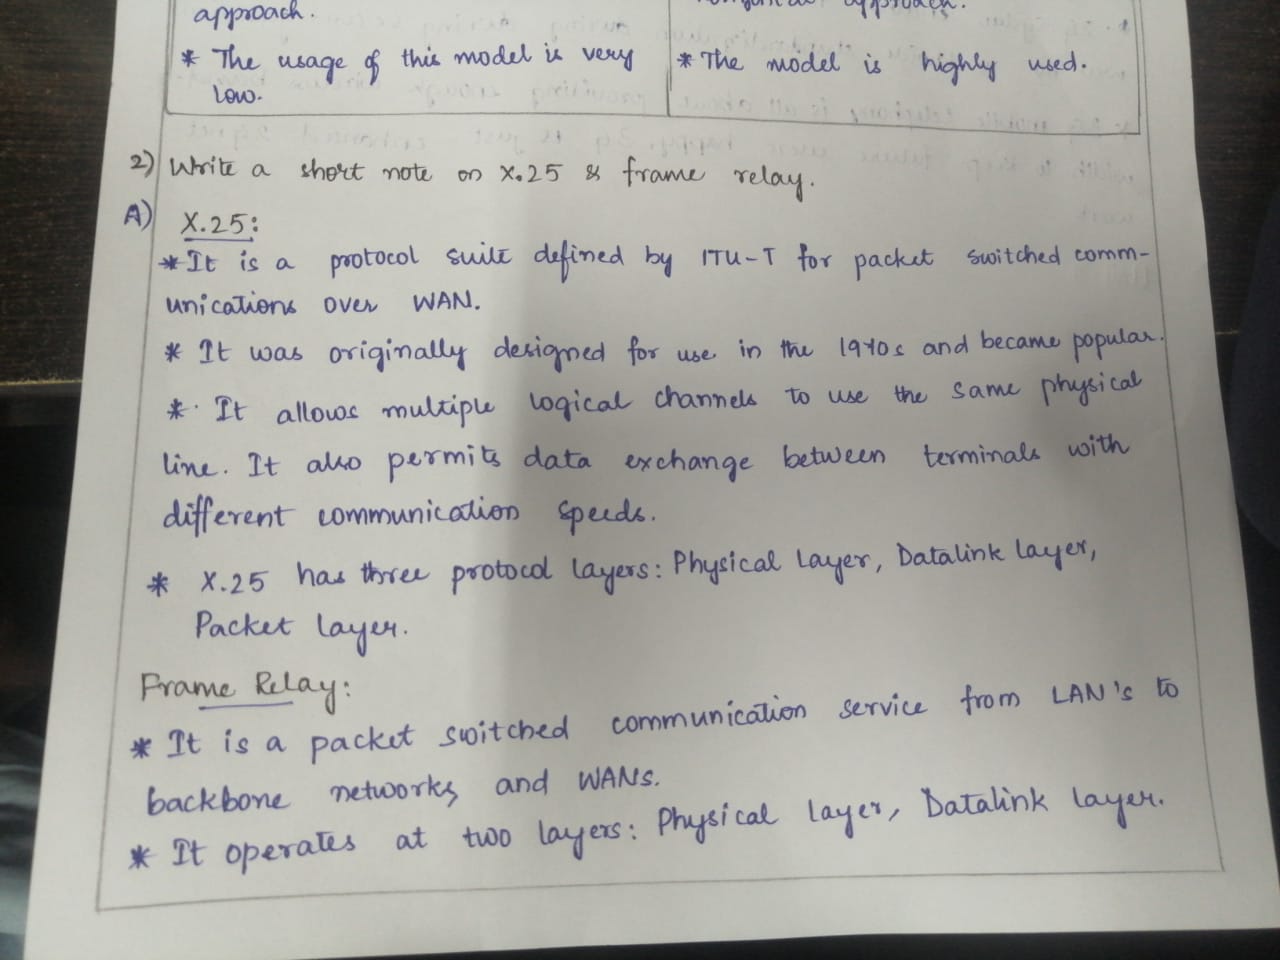 approach.
* The usage of this model is very
low.
approach.
* The model is highly used.
2) Write a short note on X.25 & frame relay.
A) X.25:
* It is a protocol suite defined by ITU-T for packet switched comm-
unications over WAN.
* It was originally designed for use in the 1970s and became popular.
* It allows multiple logical channels to use the same physical
line. It also permits data exchange between terminals with
different communication speeds.
* X.25 has three protocol layers: Physical Layer, Datalink layer,
Packet layer.
Frame Relay:
* It is a packet switched communication service from LAN's to
backbone networks and WANs.
* It operates at two layers: Physical layer, Datalink layer.